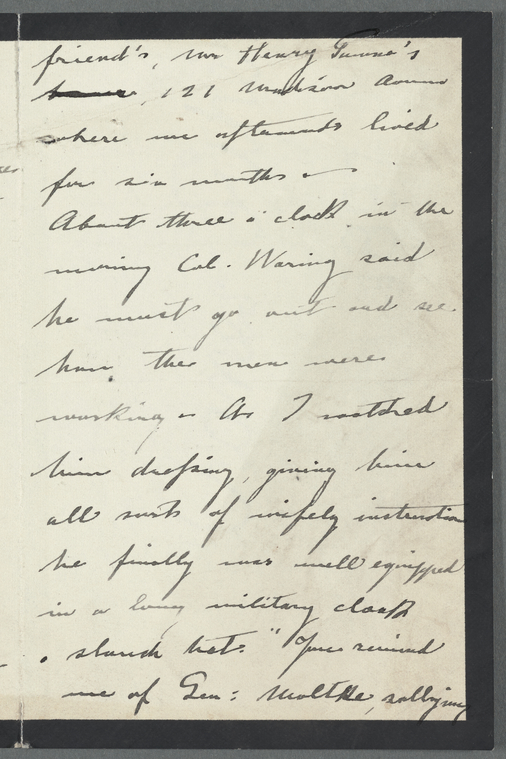 friend's, Mr Henry
121 Madison Avenue
where we afterwards lived
for six months -
About three o'clock in the
morning Col. Waring said
he must go out and see
how the men were
working - As I watched
him dressing, giving him
all sorts of wifely instruction
he finally was well equipped
in a long military cloak
& slouch hat. "You remind
me of Gen: Moltke, sallying